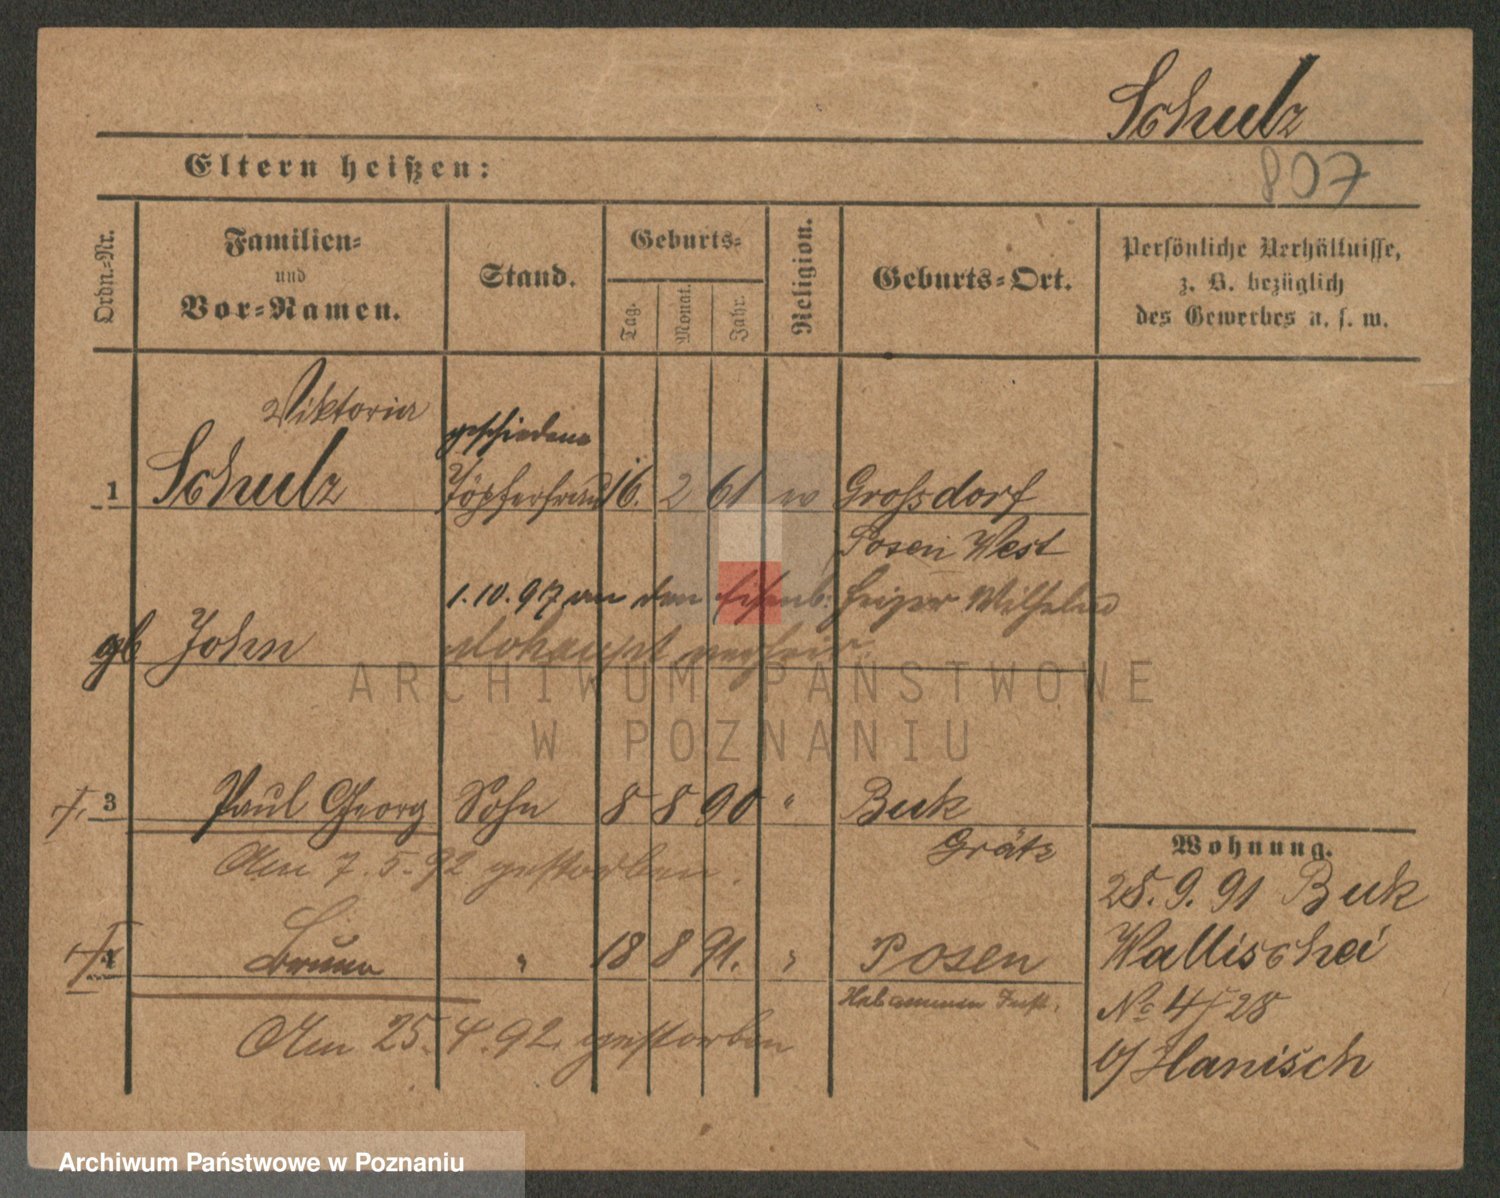 Schulz
Eltern heißen:
807
Ordn.-Nr.
Familien-
und
Vor-Namen.
Stand.
Geburts-
Tag.
Monat.
Jahr.
Religion.
Geburts-Ort.
Persönliche Verhältnisse,
z. B. bezüglich
des Gewerbes u. s. w.
Viktoria
geschiedene
1 Schulz Töpferfrau 16. 2 61 Grossdorf
Posen West
1.10.97 an den Eisenb. Heizer Wilhelm
gb John verheir.
ARCHIWUM PAŃSTWOWE
W POZNANIU
3 Paul Georg Sohn 8 8 90 " Buk
Grätz
Am 7.5.92 gestorben.
4 Bruno " 18 8 91. " Posen
Hebammen Inst.
Am 25.4.92. gestorben
Wohnung.
28.9.91 Buk
Wallischei
No 4/5 28
b/ Hanisch
Archiwum Państwowe w Poznaniu